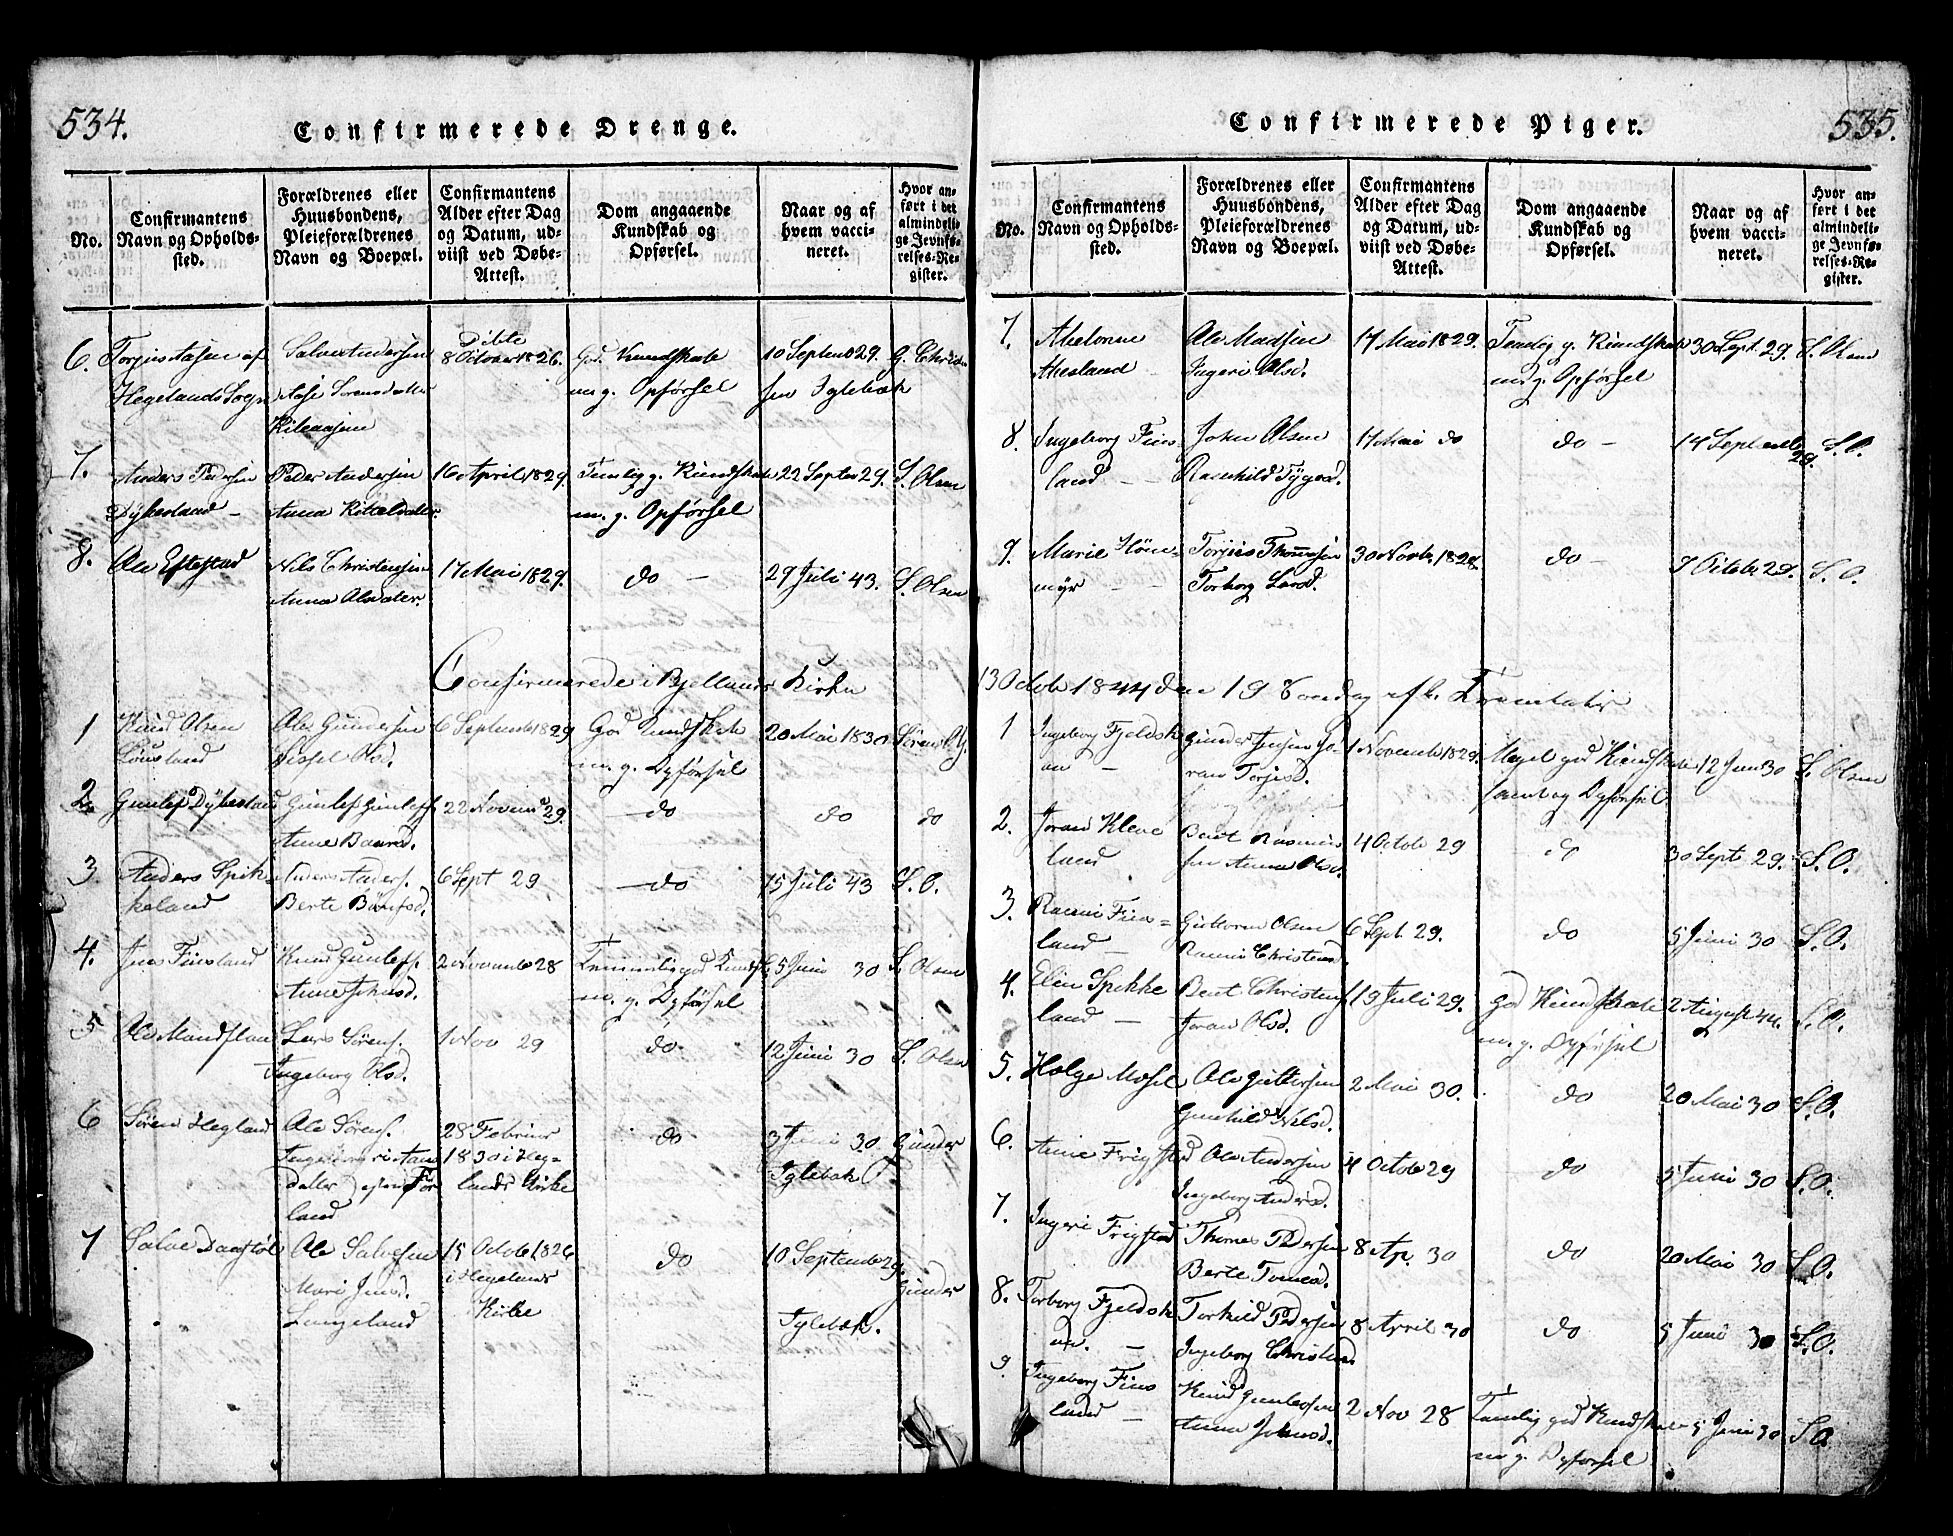 534.
Confirmerede Drenge.
No.
Confirmantens
Navn og Opholds-
sted.
Forældrenes eller
Huusbondens,
Pleieforældrenes
Navn og Boepæl.
Confirmantens
Alder efter Dag
og Datum, ud-
viist ved Døbe-
Attest.
Dom angaaende
Kundskab og
Opførsel.
Naar og af
hvem vacci-
neret.
Hvor an-
ført i det
almindeli-
ge Jevnfø-
relses-Re-
gister.
6. Torjus Aasen af
Hegelands Sogn
Salve Andersen
Kileaasen
Døbte
8 October 1826.
God Kundskab
m. g. Opførsel
10 Septemb 29.
sen Iglebæk
7. Anders Pedersen
Dykesland –
Peder Andersen
Anna Kittelsdater
16 April 1829.
Temlig g. Kundskab
m. g. Opførsel
22 Septem 29.
S. Olsen
8. Ole Eftestad
Nils Christensen
Anna Olsdater.
17 Mai 1829.
do –
29 Juli 43.
S. Olsen
Confirmerede i Bjellands Kirke
1 Knud Olsen
Ole Gundersen
Sissel Olsd.
6 Septemb 1829
God Kundskab
m. g. Opførsel
20 Mai 1830
2 Gunlef Dykesland
Gunlef Gunlefs.
Anne Baarsd.
22 Novem 29.
do
do
do
3. Anders Spik-
keland
Anders Anders.
Berte
6 Sept 29
do
15 Juli 43
S. O.
4. Jens Finsland
Knud Gunlefs.
Anne Johnsd.
2 Novemb 28
Temmelig god Kundsk.
m. g. Opførsel
5 Juni 30
S. Olsen
5 Ole
Lars Sørens.
Ingeborg Olsd.
1 Nov 29
do.
12 Juni 30
S. Olsen
6 Søren Hegland
Ole Sørens.
land
28 Februar
1830 i Heg-
lands Kirke
do
3 Juni 30.
Iglebæk
Gunder
7 Salve
Ole Salvesen
Mari
Langeland
15 Octob 1826
i Hegelands
Kirke
do
10 Septemb 29.
Iglebæk.
Gunder
535.
Confirmerede Piger.
No.
Confirmantens
Navn og Opholds-
sted.
Forældrenes eller
Huusbondens,
Pleieforældrenes
Navn og Boepæl.
Confirmantens
Alder efter Dag
og Datum, ud-
viist ved Døbe-
Attest.
Dom angaaende
Kundskab og
Opførsel.
Naar og af
hvem vacci-
neret.
Hvor an-
ført i det
almindeli-
ge Jevnfø-
relses-Re-
gister.
7. Abelone
Ole Madsen
Ingeri Olsd.
17 Mai 1829.
Temlig g. Kundskab
m. g. Opførsel
30 Sept. 29.
S. Olsen
8. Ingeborg Fins
land –
John Olsen
17 Mai do
do –
14 Septemb
29.
S. O.
9. Marie Høne-
myr –
Torjus Thomesen
Torborg
30 Novb. 1828.
do –
7 Octob 29.
S. O.
13 Octob 1844 den 19 Søndag eft. Trinitatis
1 Ingeborg Fjeldsk
aa –
Gunder Jensen Jo-
ran Torjusd.
1 Novemb 1829.
Meget god Kundskab
samt og Opførsel
12 Juni 30
S. Olsen
2. Joran Kleve
land
Bent Rasmus
sen Anna Olsd.
4 Octob 29
do
30 Sept 29.
S. O.
3. Ramni Fins-
land –
Guttorm Olsen
Ramni Christensd.
6 Sept. 29.
do
5 Juni 30
S. O.
4. Elin Spikke
land –
Bent Christens
Joran Olsd.
19 Juli 29.
god Kundskab
m. g. Opførsel
2 August 44.
S. O.
5. Helge Mosel
Ole Guttormsen
Gunhild Nilsd.
2 Mai 30.
do
20 Mai 30
S. O.
6. Anne Frigstad
Ole Andersen
Ingeborg Andersd.
4 Octob 29
do
5 Juni 30
S. O.
7. Ingeri Frigstad
Thomes Pedersen
Berte Tomesd.
8 Ap. 30
do
20 Mai 30
S. O.
8. Torborg Fjeldsk
aa. –
Torkild Pedersen
Ingeborg Christensd
8 April 30
do
5 Juni 30
S. O.
9 Ingeborg Fins
land –
Knud Gunlefsen
Anna Johnsd.
2 Nov 28
Temlig god Kundskab
m g. Opførsel
5 Juni 30
S. O